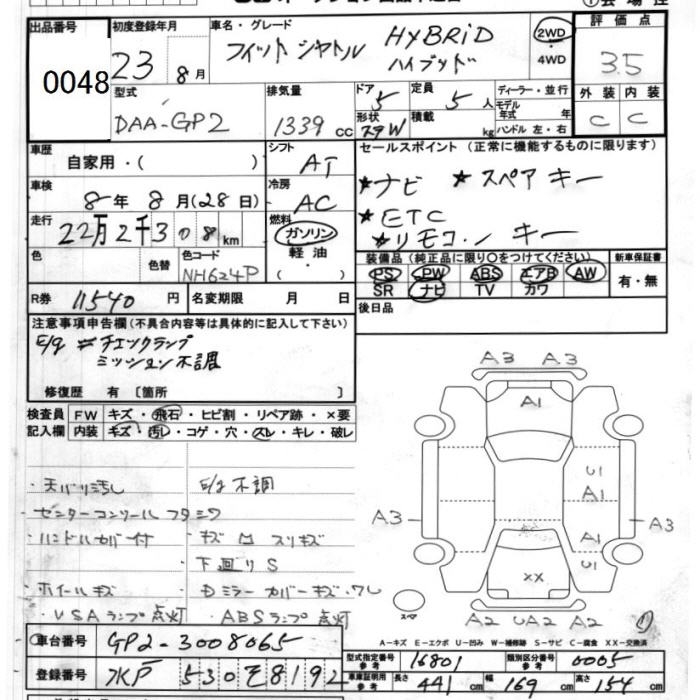 出品番号
0048
初度登録年月
23 8月
車名・グレード
フィットシャトル HYBRiD
ハイブリッド
2WD
・
4WD
評価点
3.5
外装 内装
C C
型式
DAA-GP2
排気量
1339 cc
ドア
5
形状
ステW
定員
5人
積載
kg
ディーラー・並行
モデル年式 年
ハンドル 左・右
車歴
自家用・( )
シフト
AT
車検
8年 8月(28日)
冷房
AC
走行
22万2千308km
燃料
ガソリン
軽油
( )
色
色替
色コード
NH624P
セールスポイント (正常に機能するものに限ります)
★ナビ ★スペアキー
★ETC
★リモコンキー
装備品 (純正品に限り○をつけてください)
PS PW ABS エアB AW
SR ナビ TV カワ
新車保証書
有・無
後日品
R券 11540円
名変期限 月 日
注意事項申告欄(不具合内容等は具体的に記入して下さい)
E/g チェックランプ
ミッション不調
修復歴 有〔箇所 〕
検査員記入欄
FW キズ・飛石・ヒビ割・リペア跡・×要
内装 キズ・汚レ・コゲ・穴・スレ・キレ・破レ
・天バリ汚し E/g不調
・センターコンソールフタミワ
・ハンドルカバー付 ・キズ ロ スリキズ
・下廻りS
・ホイールキズ ・Dミラーカバーキズ・ワレ
・VSAランプ点灯 ・ABSランプ点灯
A3 A3
A1
U1
A1
A3 A3
A1
U1
XX
スペア
A2 UA2 A2
①
A-キズ E-エクボ U-凹み W-補修跡 S-サビ C-腐食 XX-交換済
車台番号 GP2-3008065
登録番号 水戸 530 そ 8192
型式指定番号
参考
16801
類別区分番号
参考
0005
車庫証明用
参考
長さ 441cm 幅 169cm 高さ 154cm